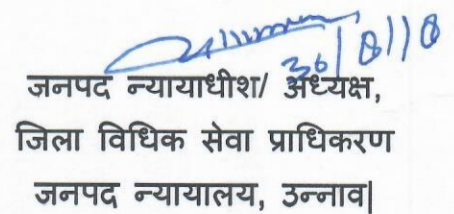 30/8/18
जनपद न्यायाधीश/ अध्यक्ष,
जिला विधिक सेवा प्राधिकरण
जनपद न्यायालय, उन्नाव|